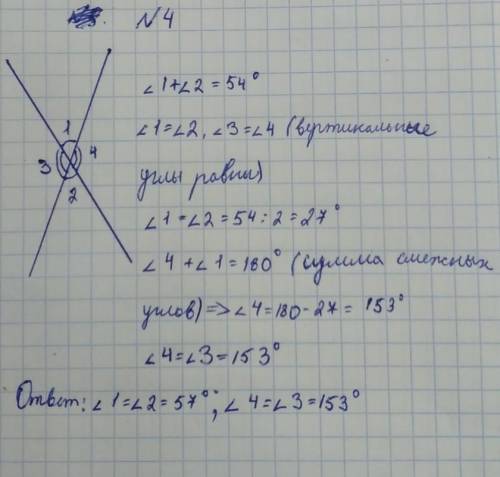 №4
∠1+∠2=54°
1
∠1=∠2, ∠3=∠4 (вертикальные
3 4
углы равны)
2
∠1=∠2=54:2=27°
∠4+∠1=180° (сумма смежных
углов)=>∠4=180-27= 153°
∠4=∠3=153°
Ответ: ∠1=∠2=57°; ∠4=∠3=153°